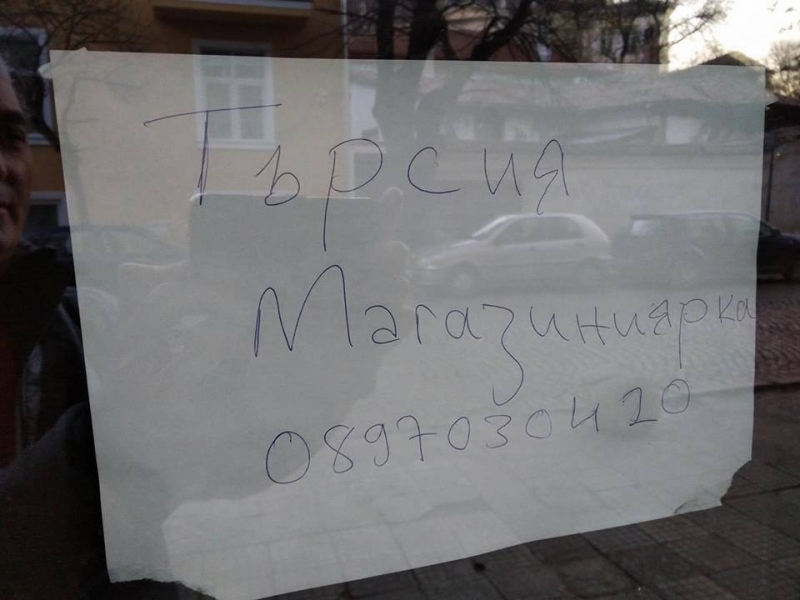 Търсия
Магазиниярка
0897030420